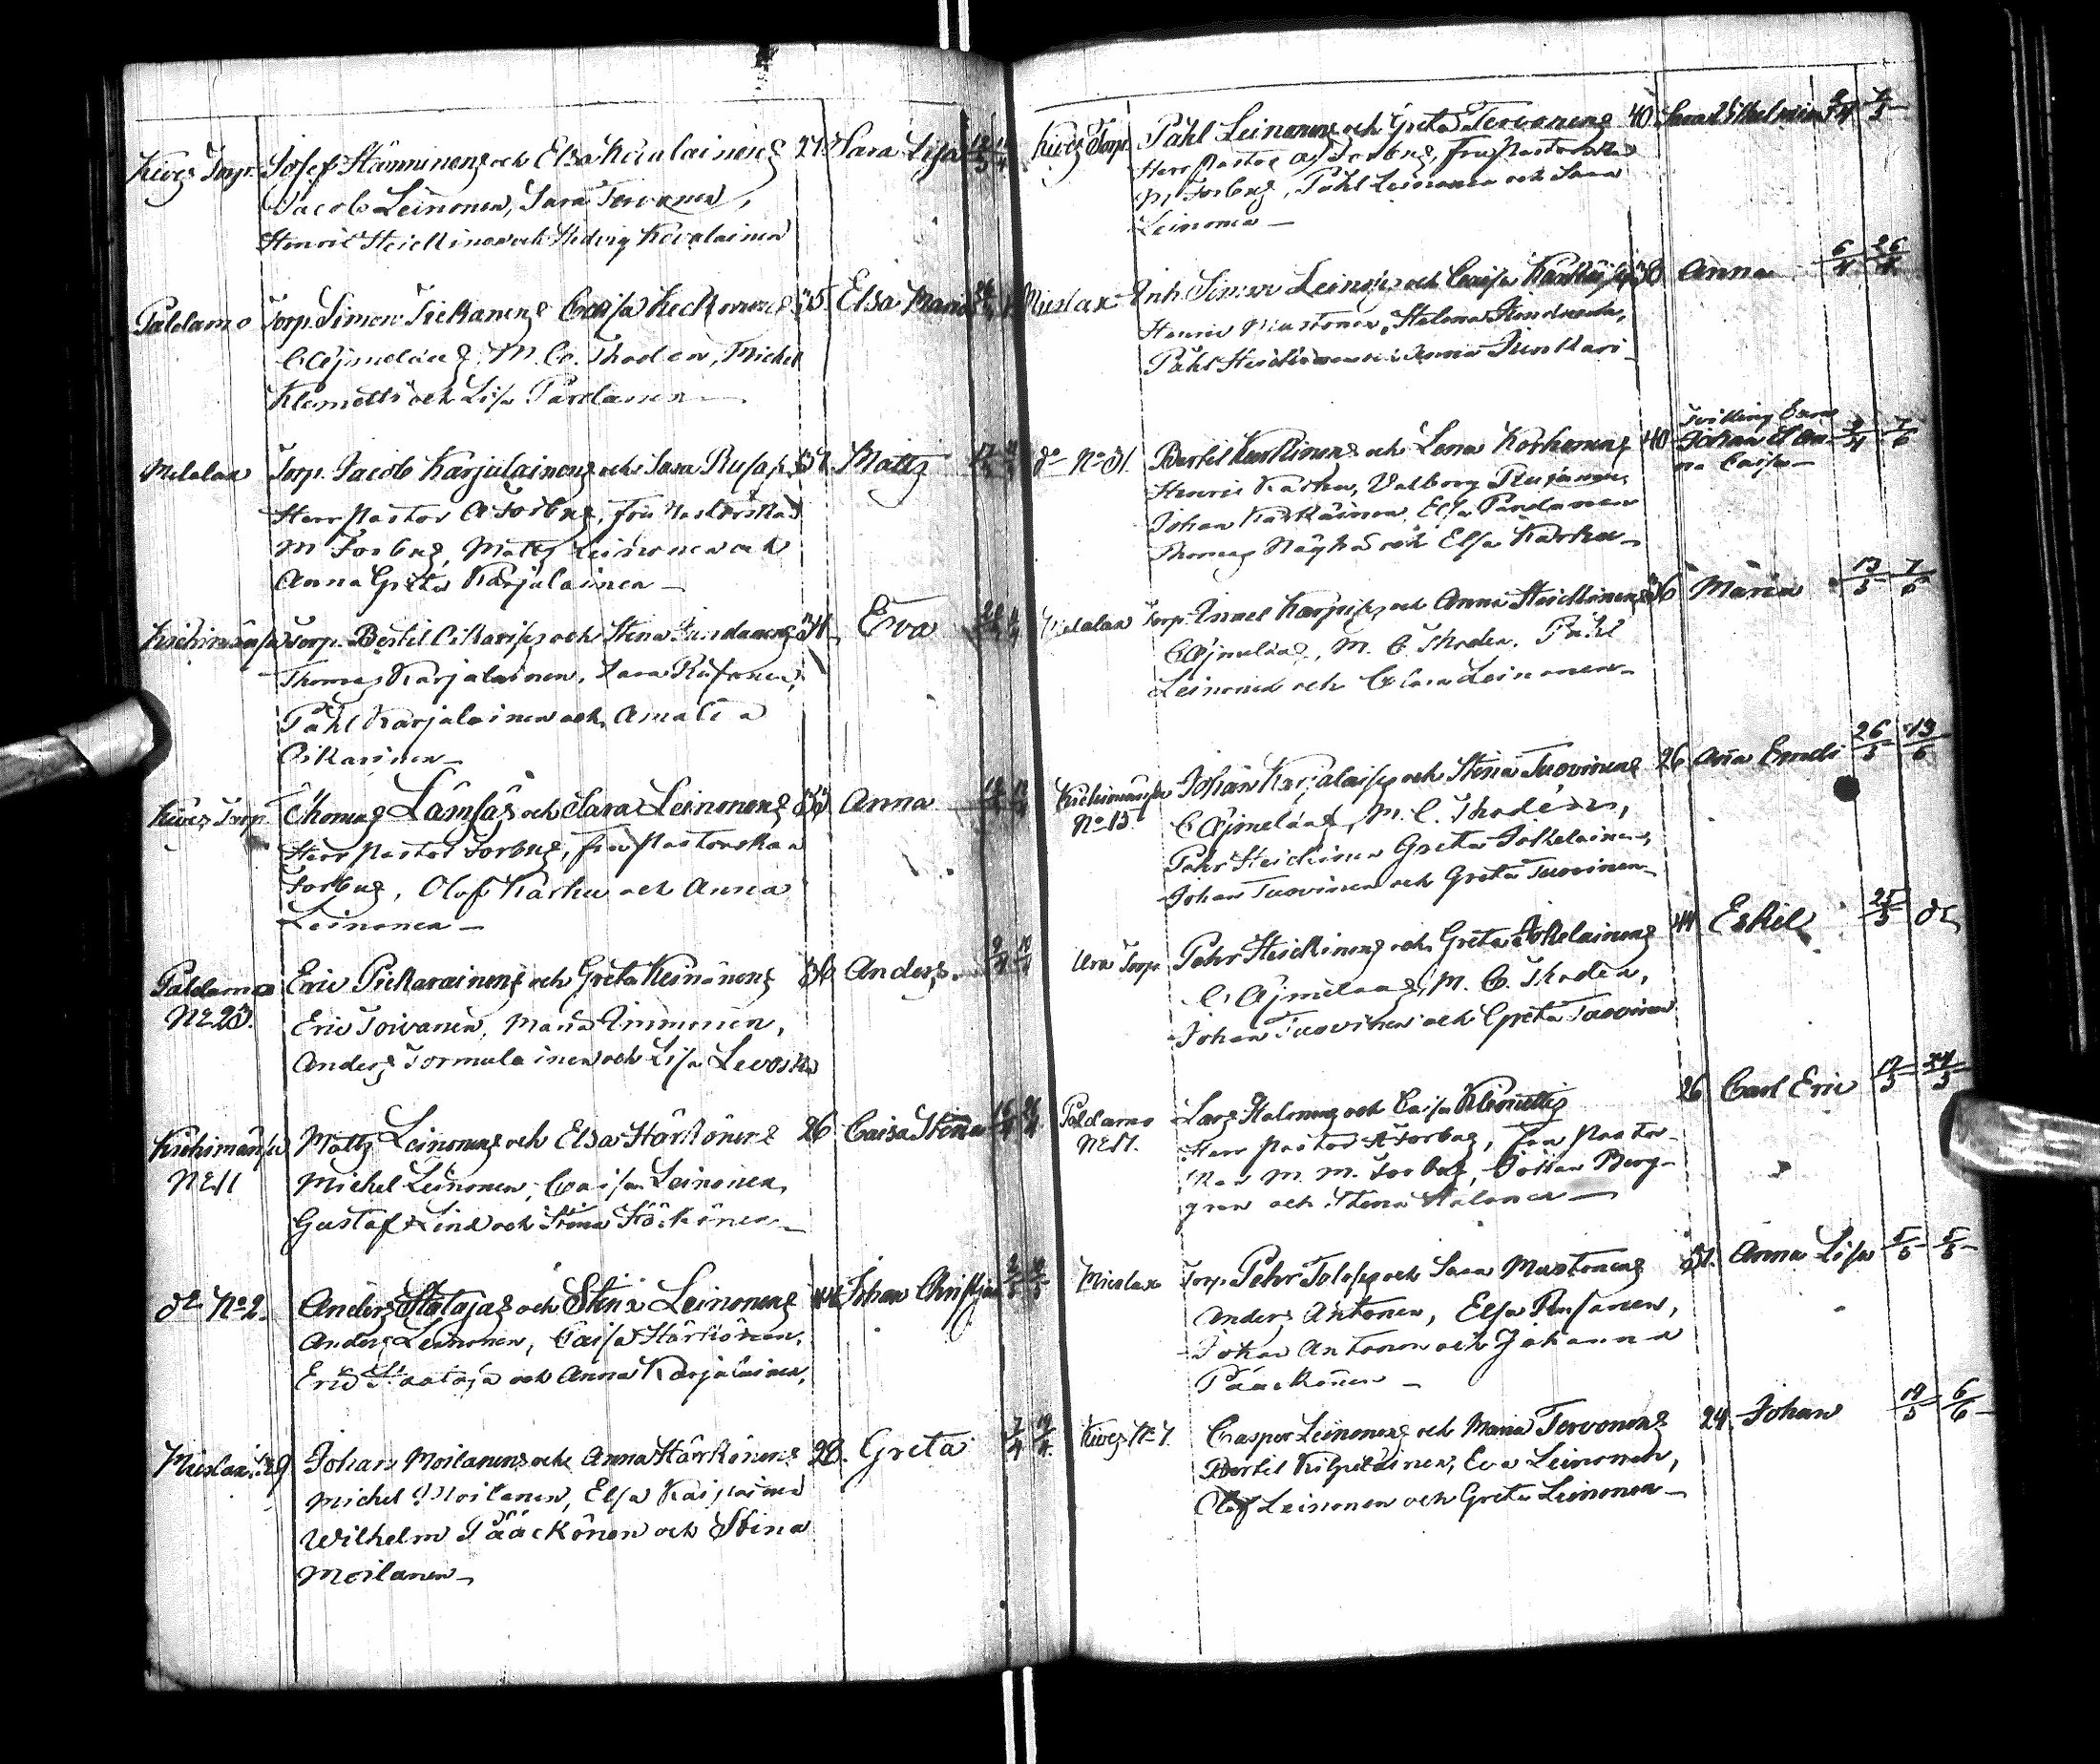 Kives Torp. Josef Hämminens och Elsa Kovalainens 27. Sara Lisa 12/3
Jacob Leinonen, Sara Tervonen,
Henric Heickinen och Hedvig Kovalainen
Paldamo Torp. Simon Tickanens Caisa Keckonens 35. Elsa Maria
C. Ajmelæus, M. C. Thoden, Michel
Klemetti och Lisa Pardanen
Melalax Torp. Jacob Karjulainens och Sara Rusas 37. Matts
Herr Pastor A Forbus, fru Pastorskan
M Forbus, Matts Leinonen och
Anna Greta Karjalainen
Kiehimänsu Torp. Bertil Oikaris och Stena Fundanens 34. Eva
Thomas Karjalainen, Sara Rusanen,
Påhl Karjalainen och Amalia
Oikarinen
Kives Torp. Thomas Lämsäs och Sara Leinonens 33. Anna
Herr Pastor Forbus, fru Pastorskan
Forbus, Olof Karhu och Anna
Leinonen
Paldamo Eric Pickarainens och Greta Keinänens 36 Anders 9/4
No 23. Eric Toivanen, Maria Immonen,
Anders Tormulainen och Lisa Levoska
Kiehimänsu Matts Leinonens och Elsa Härkönens 26 Caisa Stina
No 11 Michel Leinonen, Caisa Leinonen,
Gustaf Lind och Stina Härkönen
do No 2. Anders Hatajas och Stina Leinonens 44 Johan Christian
Anders Leinonen, Caisa Härkönen,
Eric Haataja och Anna Karjalainen,
Mieslax 29 Johan Moilanens och Anna Härkönens 28. Greta 7/4 19/4
Michel Moilanen, Elsa Kaipainen
Wilhelm Pääckönen och Stina
Moilanen
Kives Torp. Påhl Leinonens och Greta Tervonens 40. Sara Wilhelmina
Herr Pastor A Forbus, fru Pastorskan
M Forbus, Påhl Leinonen och Sara
Leinonen
Mieslax Inh. Simon Leinos och Caisa 38 Anna 6/4 26/4
Henric Mustonen, Helena
Påhl Heickinen och Anna Junkkari
Tvilling Barn
do No 31. Bertil Karkkinens och Lena Korhonens 40 Johan & An-
na Caisa
Henric Karhu, Valborg Rusanen,
Johan Kärkäinen, Elsa Pardanen
Thomas Näyhä och Elsa Karhu
Melalax Torp. Israel Karpis och Anna Heickinens 36 Maria 13/5 7/6
C Ajmelæus, M. C. Thoden, Påhl
Leinonen och Clara Leinonen
Kiehimänsu Johan Karjalais och Stina Tuovinens 26 Ana Erndi 26/5 13/6
No 13. C Ajmelæus, M. C. Thodén,
Pehr Heickinen Greta Jokelainen,
Johan Tuovinen och Greta Tuovinen
Ura Torp. Pehr Heickinens och Greta Jokelainens 44 Eskel 25/5 do
C. Ajmelæus, M. C. Thoden,
Johan Tuovinen och Greta Tuovinen
Paldamo Lars Halonens och Caisa Klemettis 26 Carl Eric 17/5 24/5
No 17. Herr Pastor A Forbus, Fru Pastor-
skan M. M. Forbus, Johan Berg-
gren och Stena Halonen
Mieslax Torp. Pehr Tolos och Sara Mustonens 37. Anna Lisa 5/5 5/5
Anders Antonen, Elsa Rusanen,
Johan Antonen och Johanna
Pääckönen
Kives No 7. Casper Leinonens och Maria Tervonens 24. Johan 19/5 6/6
Bertil Kilpeläinen, Eva Leinonen,
Olof Leinonen och Greta Leinonen